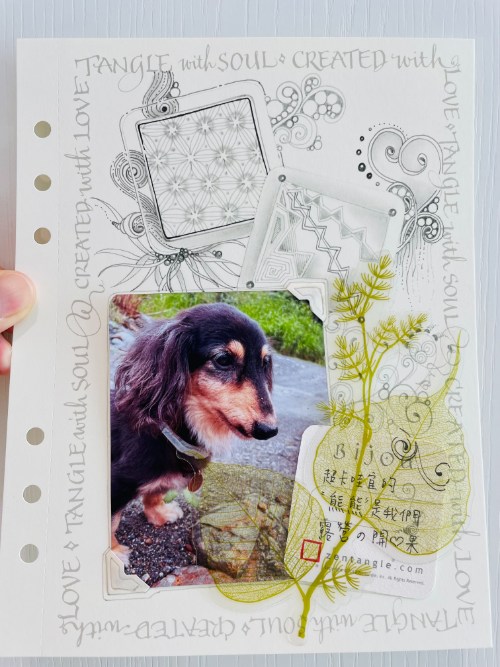 TANGLE with SOUL ⋄ CREATED with
LOVE ⋄ TANGLE with SOUL & CREATED with LOVE
LOVE ⋄ TANGLE with SOUL & CREATED with LOVE
TANGLE with SOUL ⋄ CREATED with
Bijou
超卡哇宜的
熊熊是我們
露營の開♡果
zentangle.com
All Rights Reserved.